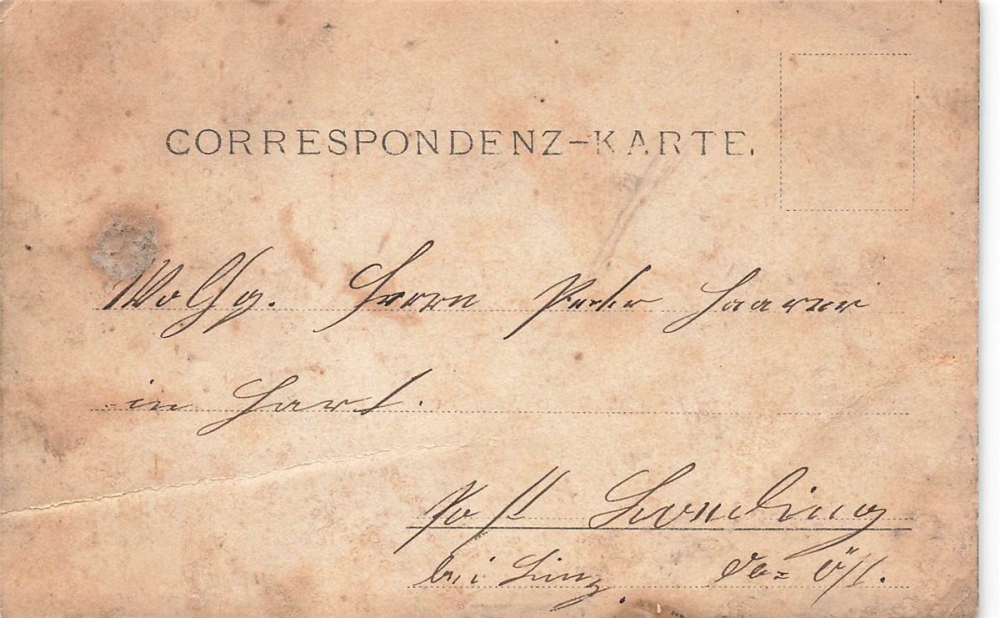 CORRESPONDENZ-KARTE.
Herrn Peter
in Hart.
Post Leonding
bei Linz Ob= Öst.